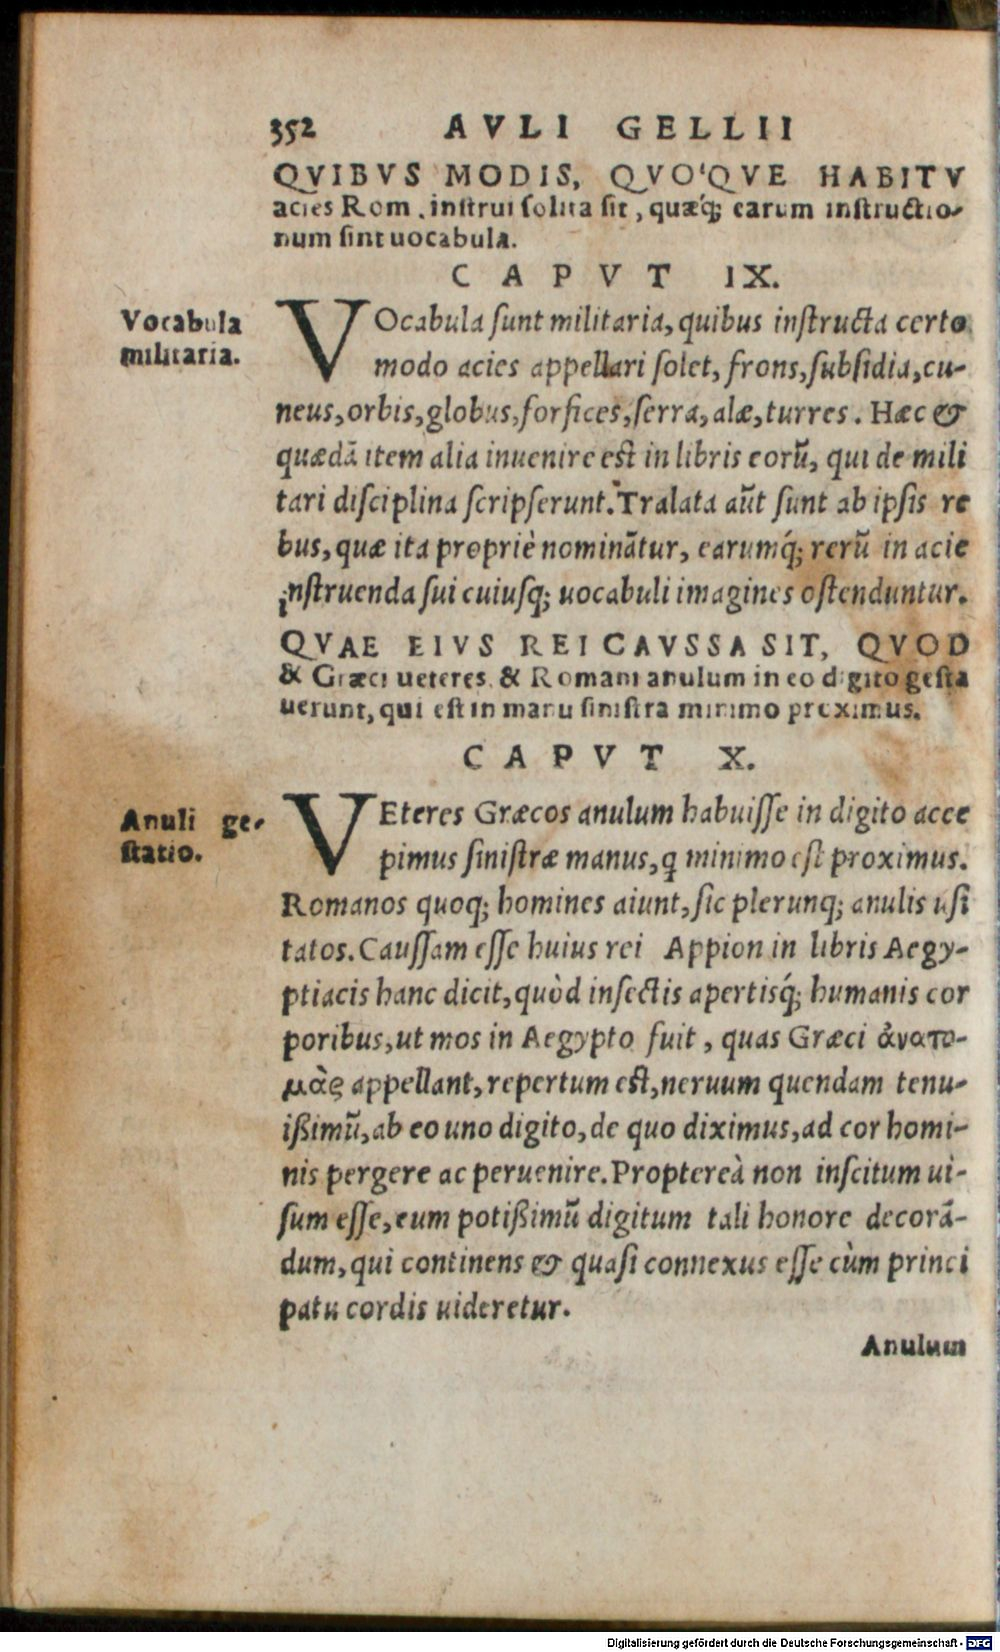 352 AVLI GELLII
QVIBVS MODIS, QVO'QVE HABITV
acies Rom. inſtrui ſolita ſit, quæq́; earum inſtructio-
num ſint uocabula.
CAPVT IX.
Vocabula
militaria.
VOcabula ſunt militaria, quibus inſtructa certo
modo acies appellari ſolet, frons, ſubſidia, cu-
neus, orbis, globus, forfices, ſerra, alæ, turres. Hæc &
quædã item alia inuenire eſt in libris eorũ, qui de mili
tari diſciplina ſcripſerunt. Tralata aũt ſunt ab ipſis re
bus, quæ ita propriè nominãtur, earumq́; rerũ in acie
inſtruenda ſui cuiuſq; uocabuli imagines oſtenduntur.
QVAE EIVS REI CAVSSA SIT, QVOD
& Græci ueteres & Romani anulum in eo digito geſta
uerunt, qui eſt in manu ſiniſtra minimo proximus.
CAPVT X.
Anuli ge-
ſtatio.
VEteres Græcos anulum habuiſſe in digito acce
pimus ſiniſtræ manus, q̃ minimo eſt proximus.
Romanos quoq; homines aiunt, ſic plerunq; anulis uſi
tatos. Cauſſam eſſe huius rei Appion in libris Aegy-
ptiacis hanc dicit, quòd inſectis apertisq́; humanis cor
poribus, ut mos in Aegypto fuit, quas Græci ἀνατο-
μὰς appellant, repertum eſt, neruum quendam tenu-
ißimũ, ab eo uno digito, de quo diximus, ad cor homi-
nis pergere ac peruenire. Proptereà non inſcitum ui-
ſum eſſe, eum potißimũ digitum tali honore decorã-
dum, qui continens & quaſi connexus eſſe cùm princi
patu cordis uideretur.
Anulum
Digitalisierung gefördert durch die Deutsche Forschungsgemeinschaft - DFG